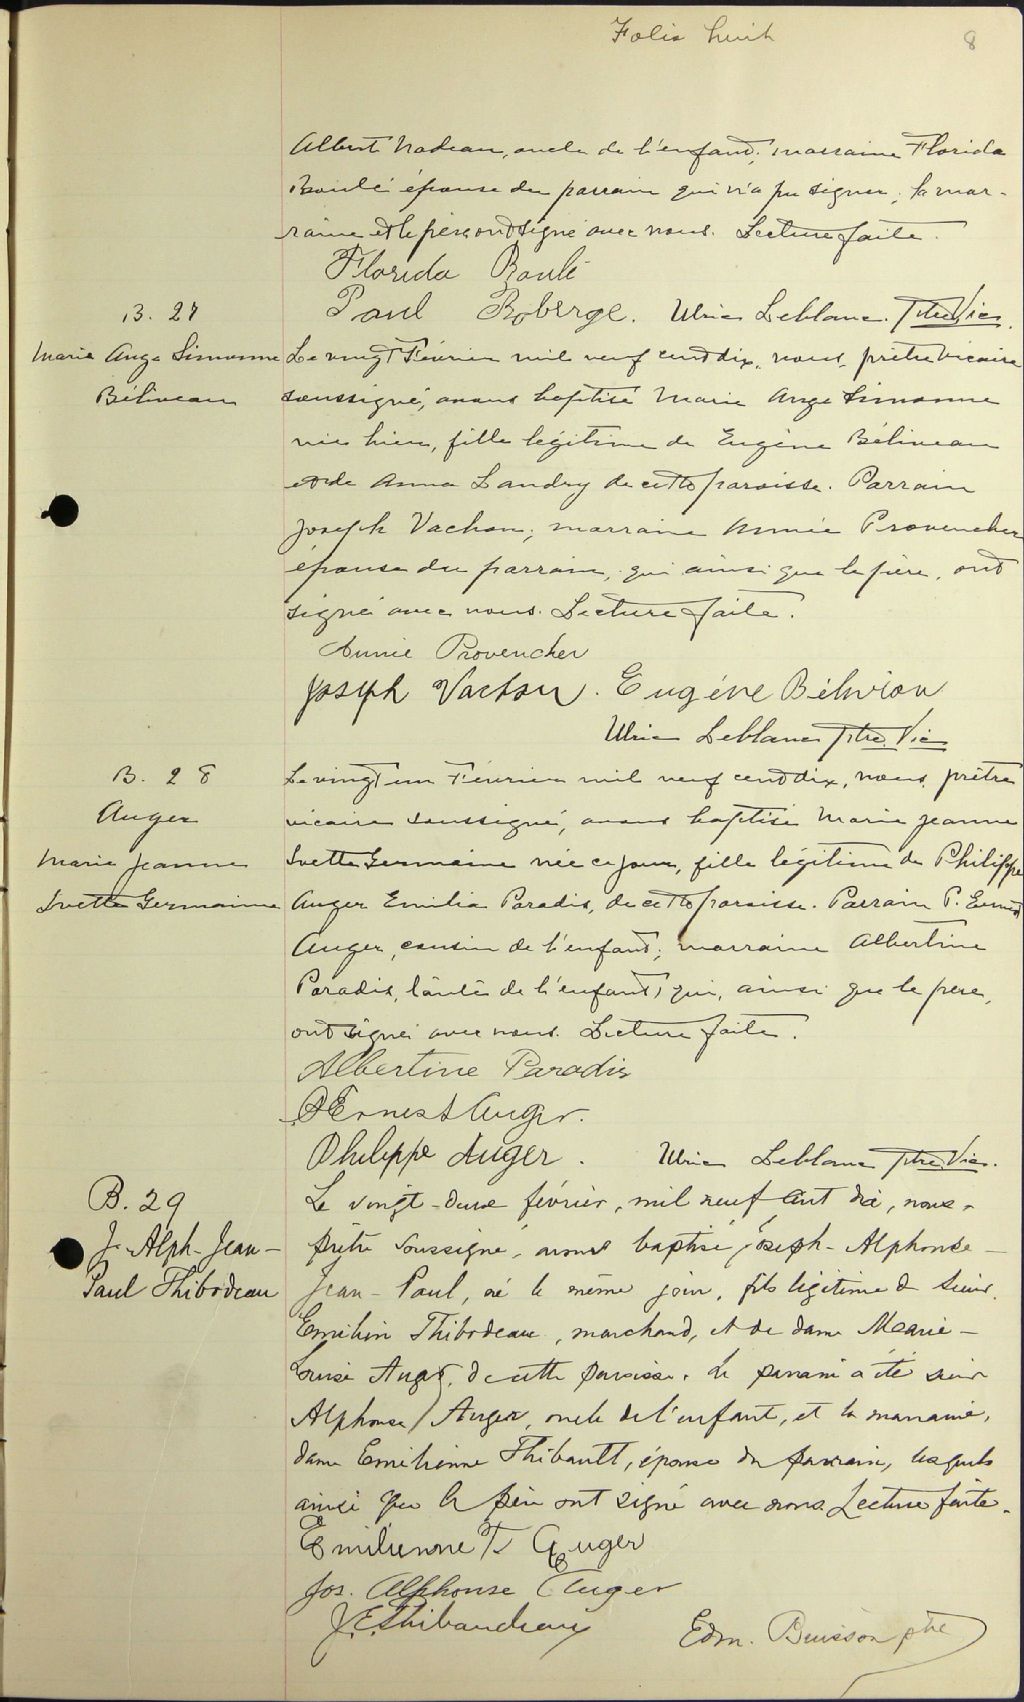 Folio huit
8
Albert Nadeau, oncle de l'enfant; marraine Florida
Boulé épouse du parrain qui n'a pu signer, la mar-
raine et le père ont signé avec nous. Lecture faite.
Florida Boulé
Paul Roberge. Ulric Leblanc Ptre Vic.
B. 27
Marie Ange Simonne
Béliveau
Le vingt Février mil neuf cent dix, nous, prêtre vicaire
soussigné, avons baptisé Marie Ange Simonne
née hier, fille légitime de Eugène Béliveau
et de Anna Landry de cette paroisse. Parrain
Joseph Vachon; marraine Annie Provencher
épouse du parrain, qui ainsi que le père, ont
signé avec nous. Lecture faite.
Annie Provencher
Joseph Vachon. Eugène Béliveau
Ulric Leblanc Ptre Vic
B. 28
Auger
Marie Jeanne
Ivette Germaine
Le vingt un Février mil neuf cent dix, nous, prêtre
vicaire soussigné, avons baptisé Marie Jeanne
Ivette Germaine née ce jour, fille légitime de Philippe
Auger Emilia Paradis, de cette paroisse. Parrain P. Ernest
Auger, cousin de l'enfant; marraine Albertine
Paradis, tante de l'enfant, qui, ainsi que le père,
ont signé avec nous. Lecture faite.
Albertine Paradis
P Ernest Auger.
Philippe Auger. Ulric Leblanc Ptre Vic.
B. 29
J. Alph-Jean-
Paul Thibodeau
Le vingt-deux février, mil neuf cent dix, nous
prêtre soussigné, avons baptisé Joseph-Alphonse-
Jean-Paul, né le même jour, fils légitime de Sieur
Emilien Thibodeau, marchand, et de dame Marie-
Louise Auger, de cette paroisse. Le parrain a été sieur
Alphonse Auger, oncle de l'enfant, et la marraine,
dame Emilienne Thibault, épouse du parrain, lesquels
ainsi que le père ont signé avec nous. Lecture faite.
Emilienne T. Auger
Jos. Alphonse Auger
J. E. Thibaudeau
Edm. Buisson ptre